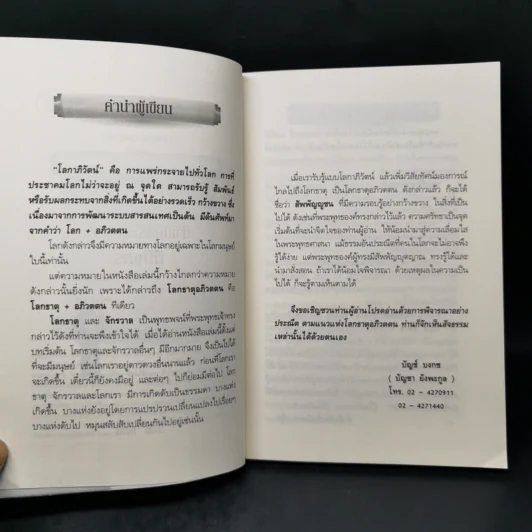 คำนำผู้เขียน
"โลกาภิวัตน์" คือ การแพร่กระจายไปทั่วโลก การที่
ประชาคมโลกไม่ว่าจะอยู่ ณ จุดใด สามารถรับรู้ สัมพันธ์
หรือรับผลกระทบจากสิ่งที่เกิดขึ้นได้อย่างรวดเร็ว กว้างขวาง ซึ่ง
เนื่องมาจากการพัฒนาระบบสารสนเทศเป็นต้น มีต้นศัพท์มา
จากคำว่า โลก + อภิวตตน
โลกดังกล่าวจึงมีความหมายทางโลกอยู่เฉพาะในโลกมนุษย์
ใบนี้เท่านั้น
แต่ความหมายในหนังสือเล่มนี้กว้างไกลกว่าความหมาย
ดังกล่าวนั้นยิ่งนัก เพราะได้กล่าวถึง โลกธาตุอภิวตตน คือ
โลกธาตุ + อภิวตตน ทีเดียว
โลกธาตุ และ จักรวาล เป็นพุทธพจน์ที่พระพุทธเจ้าทรง
กล่าวไว้ดังที่ท่านจะพึงเข้าใจได้ เมื่อได้อ่านหนังสือเล่มนี้ตั้งแต่
บทเริ่มต้น โลกธาตุและจักรวาลอื่นๆ มีอีกมากมาย จึงเป็นไปได้
ที่จะมีมนุษย์ เช่นโลกเราอยู่ดาวดวงอื่นนานแล้ว ก่อนที่โลกเรา
จะเกิดขึ้น เดี๋ยวนี้ก็ยังคงมีอยู่ และต่อๆ ไปก็ย่อมมีต่อไป โลก
ธาตุ จักรวาลและโลกเรา มีการเกิดดับเป็นธรรมดา บางแห่ง
เกิดขึ้น บางแห่งยังอยู่โดยการแปรปรวนเปลี่ยนแปลงไปเรื่อยๆ
บางแห่งดับไป หมุนสลับสับเปลี่ยนกันไปอยู่เช่นนั้น
เมื่อเรารับรู้แบบโลกาภิวัตน์ แล้วเพิ่มวิสัยทัศน์มองการณ์
ไกลไปถึงโลกธาตุ เป็นโลกธาตุอภิวตตน ดังกล่าวแล้ว ก็จะได้
ชื่อว่า สัพพัญญุชน ที่มีความรอบรู้อย่างกว้างขวาง ในสิ่งที่เป็น
ไปได้ ดังเช่นที่พระพุทธองค์ทรงกล่าวไว้แล้ว ความศรัทธาเป็นจุด
เริ่มต้นที่จะนำจิตใจของท่านผู้อ่าน ให้น้อมนำมาสู่ความเลื่อมใส
ในพระพุทธศาสนา แม้ธรรมอันประเสริฐที่คนในโลกจะไม่อาจพึง
รู้ได้ง่าย แต่พระพุทธองค์ผู้ทรงมีสัพพัญญุตญาณ ทรงรู้ได้และ
นำมาสั่งสอน ถ้าเราได้น้อมใจพิจารณา ด้วยเหตุผลในความเป็น
ไปได้ ก็จะรู้ตามเห็นตามได้
จึงขอเชิญชวนท่านผู้อ่านโปรดอ่านด้วยการพิจารณาอย่าง
ประณีต ตามแนวแห่งโลกธาตุอภิวตตน ท่านก็จักเห็นสัจธรรม
เหล่านั้นได้ด้วยตนเอง
บัญช์ บงกช
( บัญชา ยังพะกูล )
โทร. 02 – 4270911
02 – 4271440